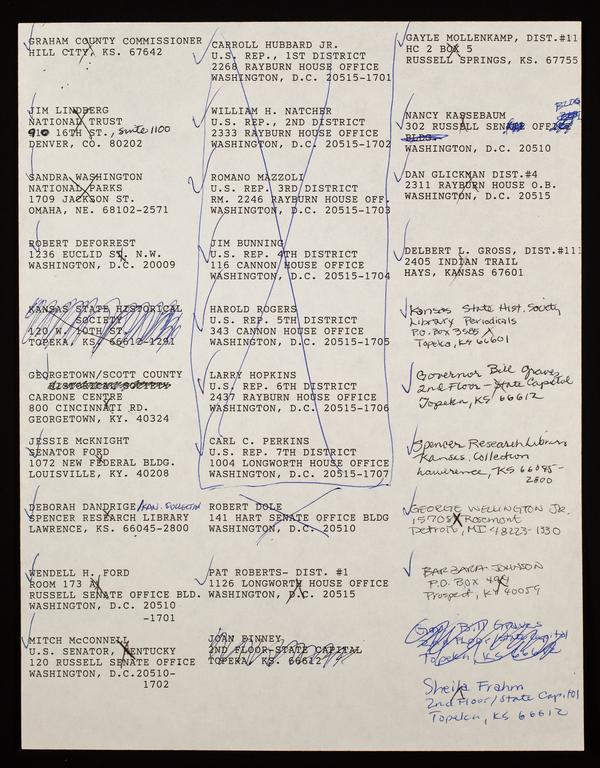 GRAHAM COUNTY COMMISSIONER
HILL CITY, KS. 67642
JIM LINDBERG
NATIONAL TRUST
910 16TH ST., Suite 1100
DENVER, CO. 80202
SANDRA WASHINGTON
NATIONAL PARKS
1709 JACKSON ST.
OMAHA, NE. 68102-2571
ROBERT DEFORREST
1236 EUCLID ST. N.W.
WASHINGTON, D.C. 20009
KANSAS STATE HISTORICAL
SOCIETY
120 W. 10TH ST.
TOPEKA, KS. 66612-1291
GEORGETOWN/SCOTT COUNTY
CARDONE CENTRE
800 CINCINNATI RD.
GEORGETOWN, KY. 40324
JESSIE McKNIGHT
SENATOR FORD
1072 NEW FEDERAL BLDG.
LOUSVILLE, KY. 40208
DEBORAH DANDRIGE/KAN. COLLECTION
SPENCER RESEARCH LIBRARY
LAWRENCE, KS. 66045-2800
WENDELL H. FORD
ROOM 173 A
RUSSELL SENATE OFFICE BLD.
WASHINGTON, D.C. 20510
-1701
MITCH McCONNELL
U.S. SENATOR, KENTUCKY
120 RUSSELL SENATE OFFICE
WASHINGTON, D.C.20510-
1702
CARROLL HUBBARD JR.
U.S. REP., 1ST DISTRICT
2268 RAYBURN HOUSE OFFICE
WASHINGTON, D.C. 20515-1701
WILLIAM H. NATCHER
U.S. REP., 2ND DISTRICT
2333 RAYBURN HOUSE OFFICE
WASHINGTON, D.C. 20515-1702
ROMANO MAZZOLI
U.S. REP. 3RD DISTRICT
RM. 2246 RAYBURN HOUSE OFF.
WASHINGTON, D.C. 20515-1703
JIM BUNNING
U.S. REP. 4TH DISTRICT
116 CANNON HOUSE OFFICE
WASHINGTON, D.C. 20515-1704
HAROLD ROGERS
U.S. REP. 5TH DISTRICT
343 CANNON HOUSE OFFICE
WASHINGTON, D.C. 20515-1705
LARRY HOPKINS
U.S. REP. 6TH DISTRICT
2437 RAYBURN HOUSE OFFICE
WASHINGTON, D.C. 20515-1706
CARL C. PERKINS
U.S. REP. 7TH DISTRICT
1004 LONGWORTH HOUSE OFFICE
WASHINGTON, D.C. 20515-1707
ROBERT DOLE
141 HART SENATE OFFICE BLDG
WASHINGTON, D.C. 20510
PAT ROBERTS- DIST. #1
1126 LONGWORTH HOUSE OFFICE
WASHINGTON, D.C. 20515
JOAN FINNEY
2ND FLOOR-STATE CAPITAL
TOPEKA, KS. 66612
GAYLE MOLLENKAMP, DIST.#11
HC 2 BOX 5
RUSSELL SPRINGS, KS. 67755
NANCY KASSEBAUM
302 RUSSELL SENATE OFFICE BLDG
BLDG.
WASHINGTON, D.C. 20510
DAN GLICKMAN DIST.#4
2311 RAYBURN HOUSE O.B.
WASHINGTON, D.C. 20515
DELBERT L. GROSS, DIST.#111
2405 INDIAN TRAIL
HAYS, KANSAS 67601
Kansas State Hist. Society
Library Periodicals
P.O. Box 3585
Topeka, KS 66601
Governor Bill Graves
2nd Floor - State Capitol
Topeka, KS 66612
Spencer Research Library
Kansas Collection
Lawrence, KS 66045-
2800
GEORGE WELLINGTON JR.
15708 Rosemont
Detroit, MI 48223-1330
BARBARA JOHNSON
P.O. Box 494
Prospect, KY 40059
Gov. Bill Graves
2nd Floor/State Capitol
Topeka, KS 66612
Sheila Frahm
2nd Floor/State Capitol
Topeka, KS 66612